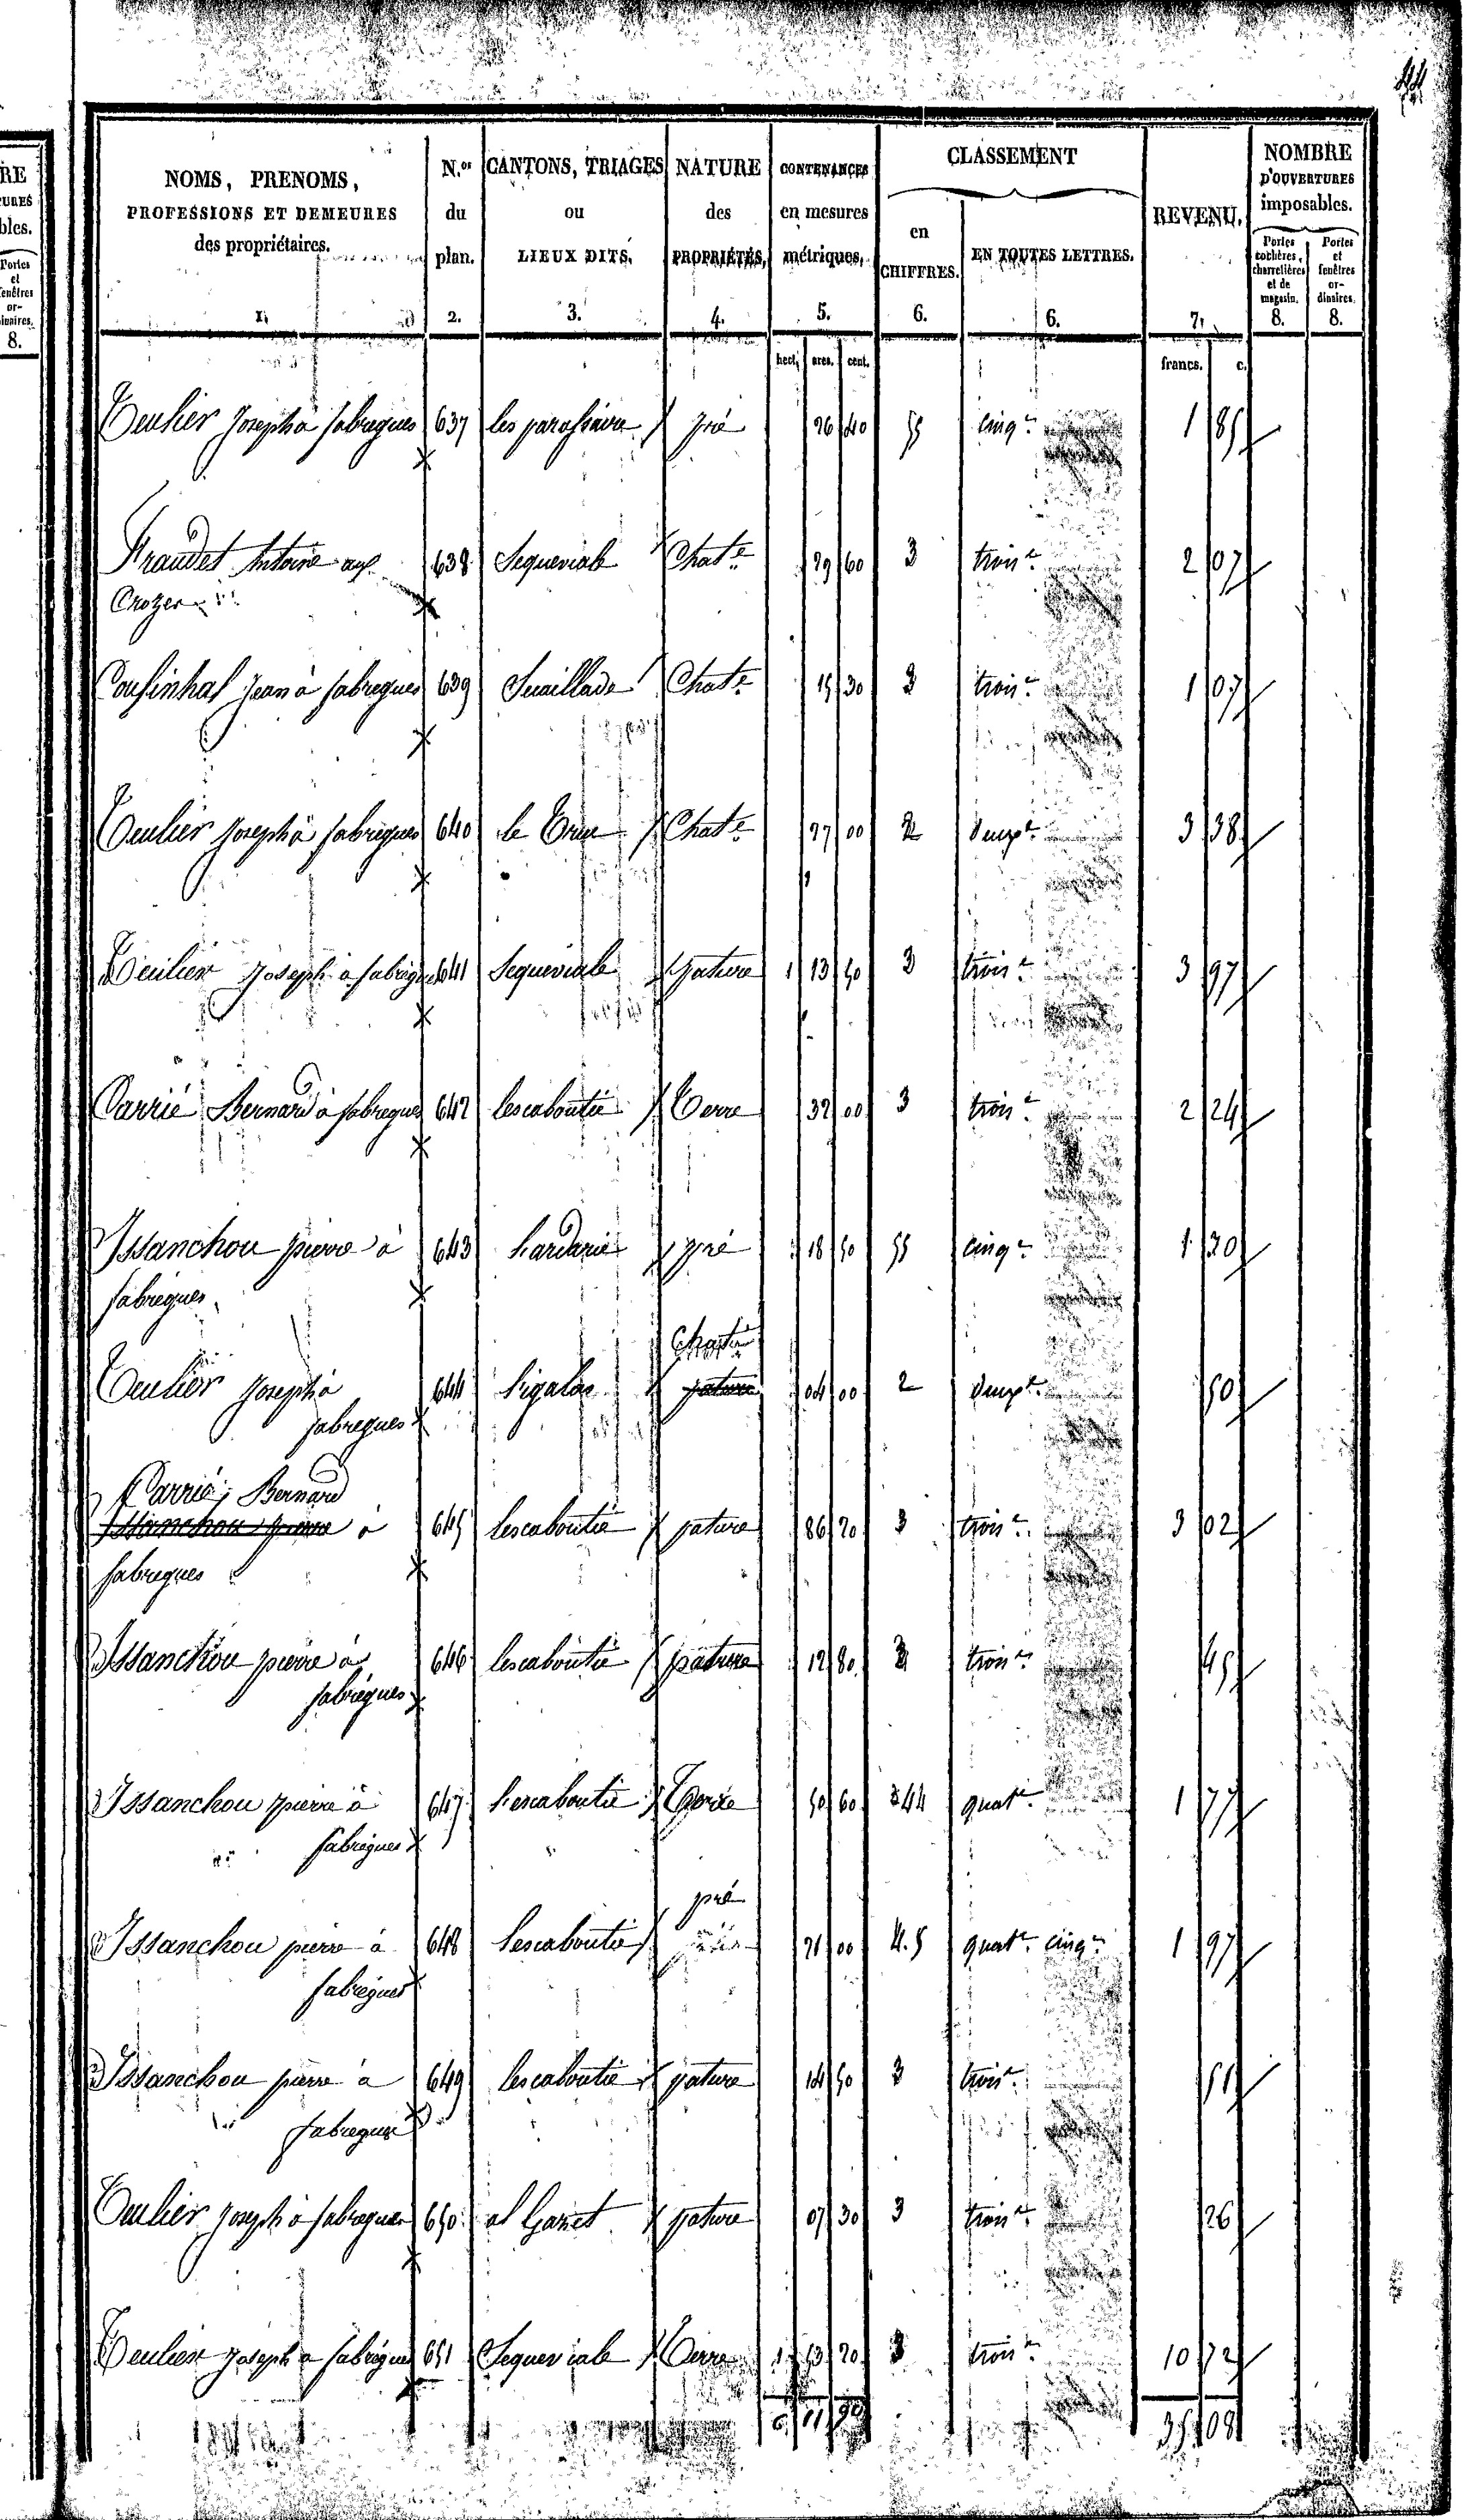 RE
URES
bles.
Portes
et
fenêtres
or-
dinaires.
8.
NOMS, PRENOMS,
PROFESSIONS ET DEMEURES
des propriétaires.
1.
N.os
du
plan.
2.
CANTONS, TRIAGES
ou
LIEUX DITS.
3.
NATURE
des
PROPRIÉTÉS.
4.
CONTENANCES
en mesures
métriques.
5.
CLASSEMENT
en
CHIFFRES.
6.
EN TOUTES LETTRES.
6.
REVENU.
7.
NOMBRE
D'OUVERTURES
imposables.
Portes
cochères,
charretières
et de
magasin.
8.
Portes
et
fenêtres
or-
dinaires.
8.
hect. ares. cent. francs. c.
Teulier Joseph à fabregues 637 les pré 26 40 5 cinq.e 1 85
Antoine aux 638 Sequeviale Chat.e 29 60 3 trois.e 2 07
Crozes
Cousinhal Jean à fabregues 639 Suaillade Chat.e 15 30 3 trois.e 1 07
Teulier Joseph à fabregues 640 le Chat.e 27 00 2 deux.e 3 38
Teulier Joseph à fabregues 641 Sequeviale pature 1 13 50 3 trois.e 3 97
Carrié Bernard à fabregues 642 lescaboutie Terre 32 00 3 trois.e 2 24
Issanchou pierre à 643 pré 18 50 5 cinq.e 1 30
fabregues
Chat.e
Teulier Joseph à 644 Sigalas pature 04 00 2 deux.e 50
fabregues
Carrié Bernard
Issanchou pierre à 645 lescaboutie pature 86 20 3 trois.e 3 02
fabregues
Issanchou pierre à 646 lescaboutie pature 12 80 3 trois.e 45
fabregues
Issanchou pierre à 647 lescaboutie Terre 50 60 4 quat.e 1 77
fabregues
pré
Issanchou pierre à 648 lescaboutie 21 00 4.5 quat.e cinq.e 1 97
fabregues
Issanchou pierre à 649 lescaboutie pature 14 50 3 trois.e 51
fabregues
Teulier Joseph à fabregues 650 al Garret pature 07 30 3 trois.e 26
Teulier Joseph à fabregues 651 Sequeviale Terre 1 53 20 3 trois.e 10 72
35 08